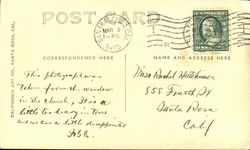 POST CARD
CALIFORNIA ART CO. SANTA ROSA, CAL.
MAR 5
1-PM
CORRESPONDENCE HERE
NAME AND ADDRESS HERE
This photograph was
taken from the window
in the church, It is a
little too heavy in tone
and was a little disappointed
Miss Rachel Hutchinson
555 Fourth St
Santa Rosa
Calif